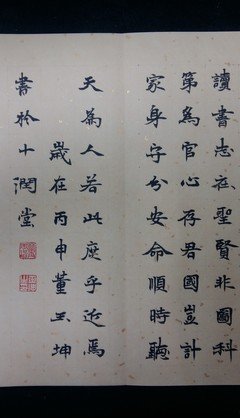 讀書志在聖賢非圖科
第為官心存君國豈計
家身守分安命順時聽
天為人若此庶乎近焉
歲在丙申董玉坤
書於十潤堂